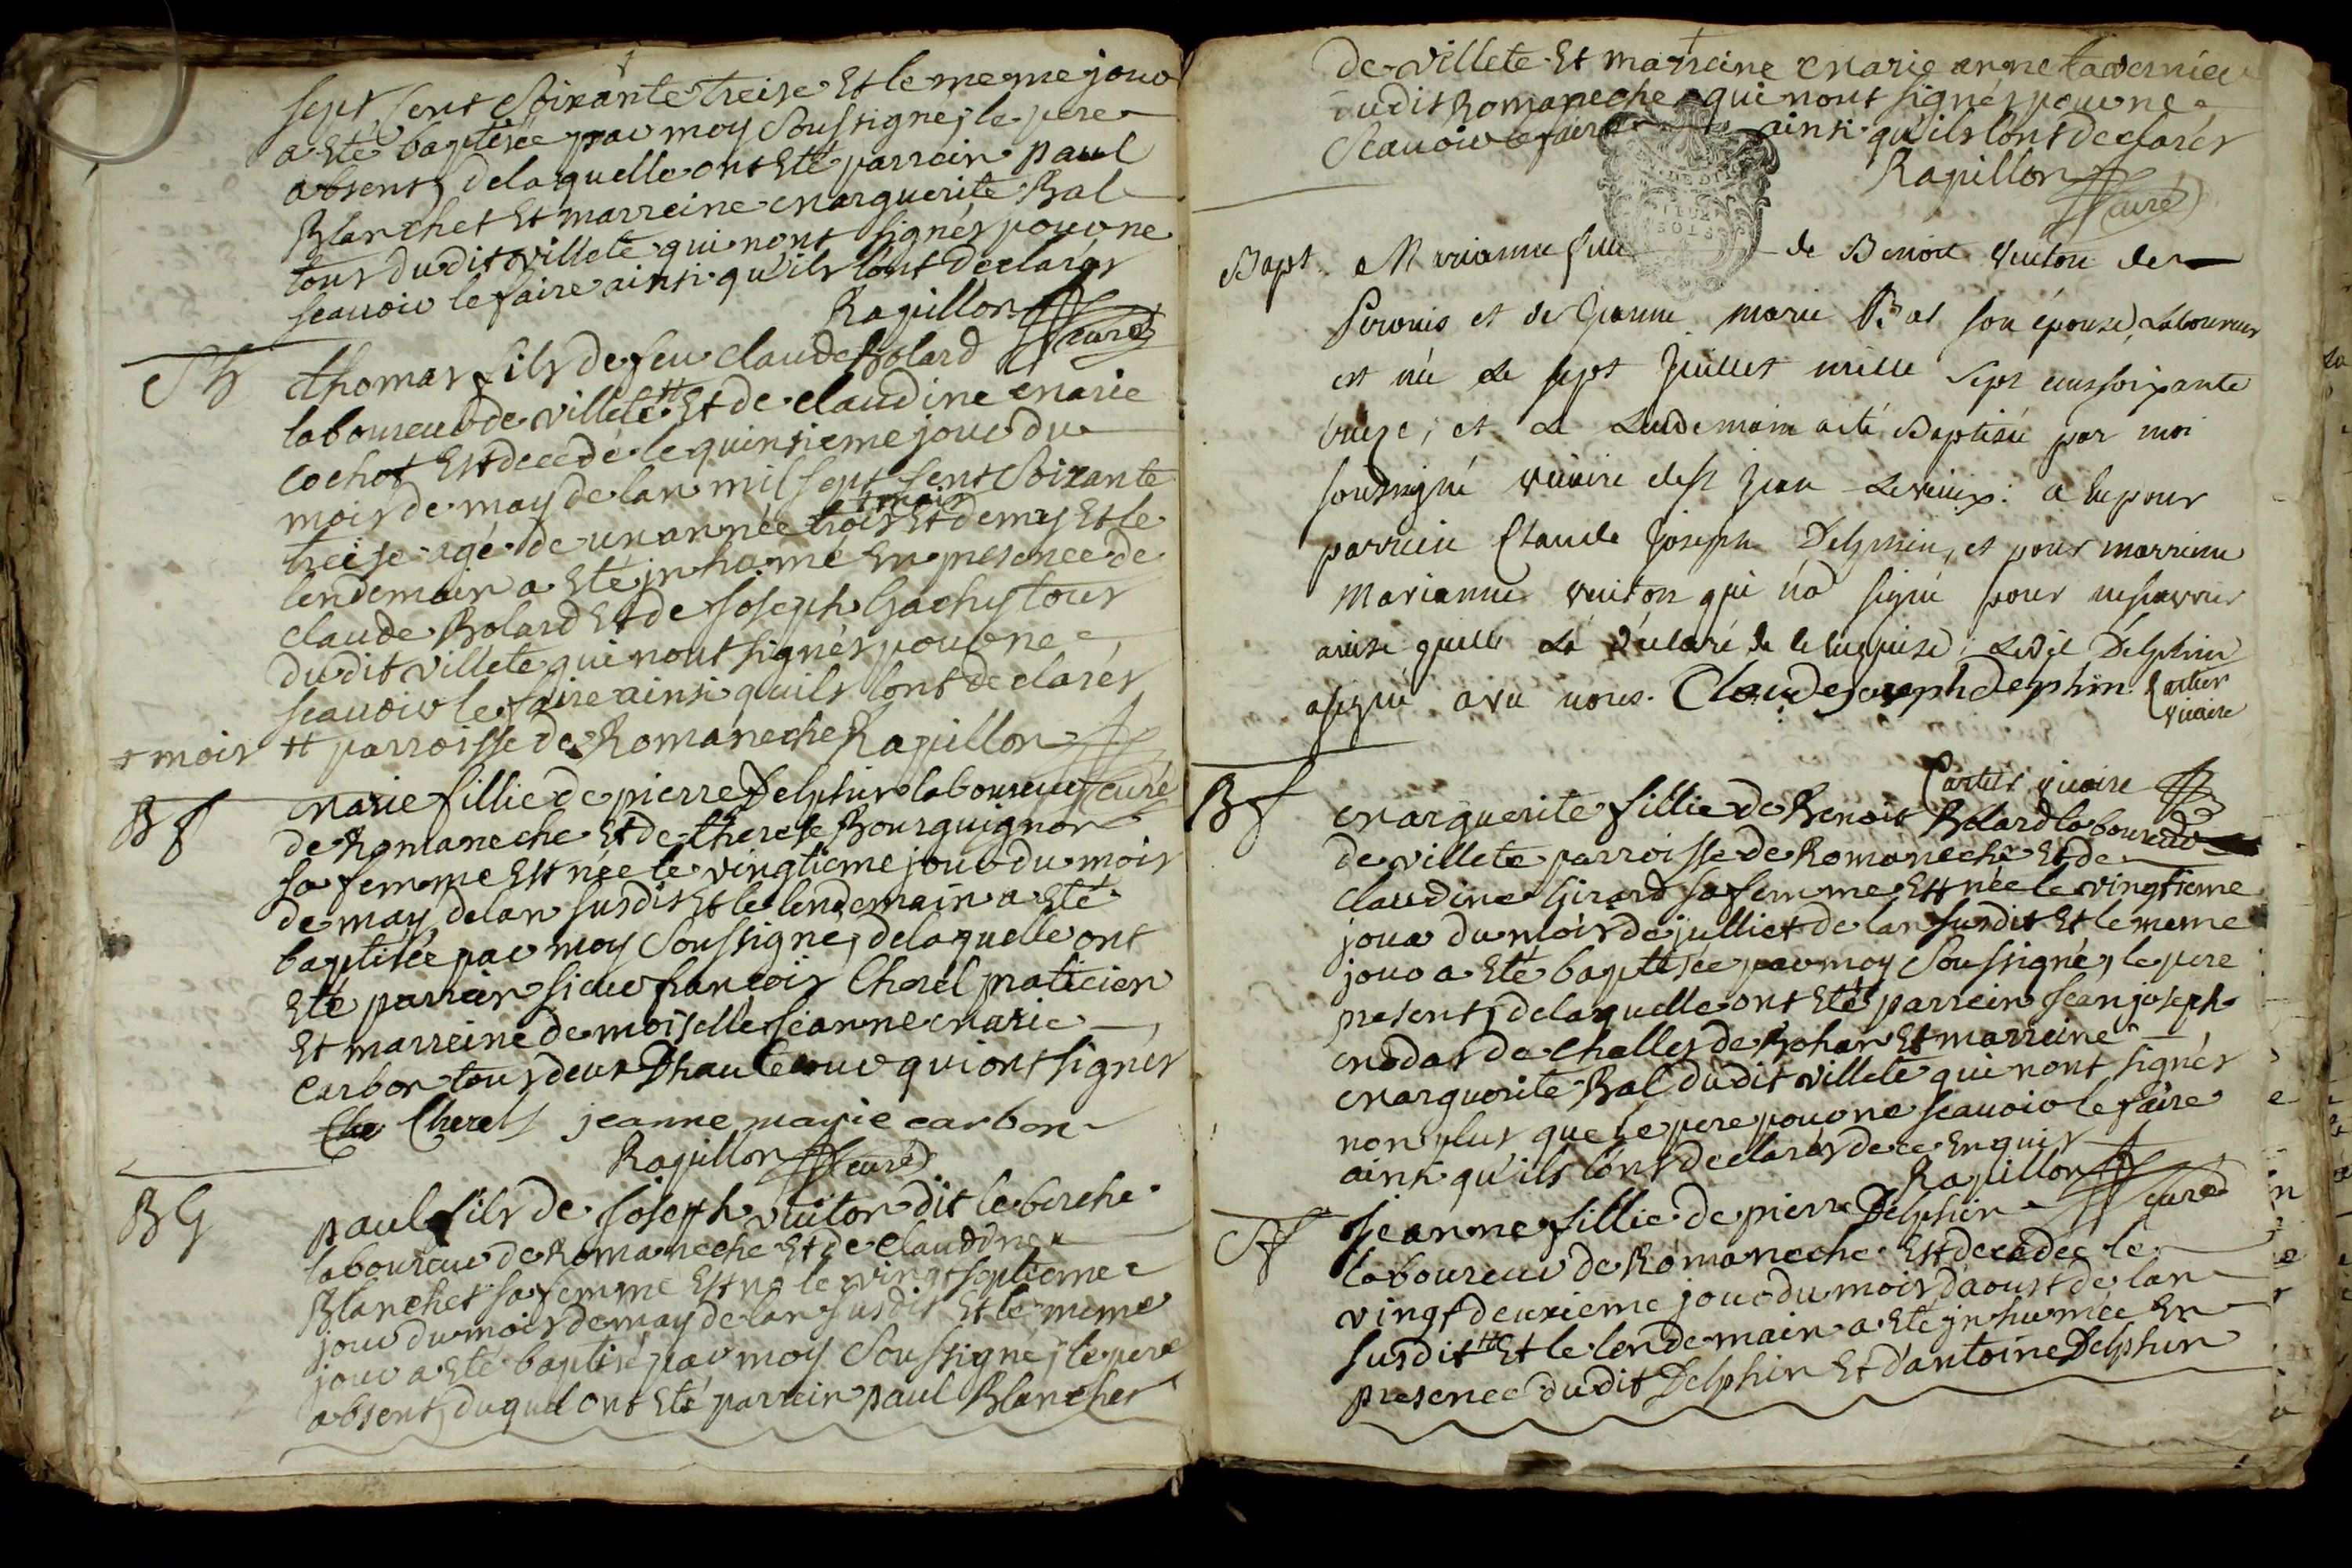 sept sent soixante treise et le meme jour
a eté baptisée par moy soussigné, le pere
absent, delaquelle ont eté parrain paul
Blanchet et marreine marguerite Bal
tous dudit villete qui nont signés pour ne
scavoir le faire ainsi qu'ils lont declarés
Rapillon curé
Sg thomas fils de feu claude Bolard
laboureur de villete # et de claudine marie
cochot est decedé le quinsieme jour du
mois de may de lan mil sept sent soixante
+ mois
treise agé de un année trois et demy et le
lendemain a eté jnhumé en presence de
claude Bolard et de joseph Gachy tous
dudit villete qui nont signés pour ne
scavoir le faire ainsi quils lont declarés
+ mois # parroisse de Romaneche Rapillon
curé
Bf marie fillie de pierre Delphin laboureur
de Romaneche et de therese Bourguignon
sa femme est née le vingtieme jour du mois
de may delan susdit et le lendemain a eté
baptisée par moy soussigné, delaquelle ont
eté parrain sieur francois Cherel praticien
et marreine demoiselle jeanne marie
carbon tous deux Dhautecour qui ont signés
Cherel jeanne marie carbon
Rapillon curé
BG paul fils de joseph vuiton dit le berche
laboureur de Romaneche et de claudine
Blanchet sa femme est né le vingt septieme
jour du mois de may de lan susdit et le meme
jour a eté baptisé par moy soussigné, le pere
absent, duquel ont eté parrein paul Blanchet
de villete et marreine marie anne tavernier
dudit Romaneche qui nont signés pour ne
scauoir le faire ainsi qu'ils lont declarés
Rapillon
curé
Bapt. Marianne fille de Benoit vuiton de
et de jeanne marie Bal son épouse, Laboureur
est née le sept juillet mille sept cens soixante
treize, et le Lendemain a eté Baptisée par moi
soussigné vicaire de st jean : a eu pour
parrein Claude joseph Delphin, et pour marreine
Marianne vuiton qui na signé pour
ainsi quelle La declaré de ce enquise ; Ledit Delphin
a signé avec nous. Claude joseph delphin Cartier
vicaire
Cartier vicaire
Bf marguerite fillie de Benoit Bolard laboureur
de villete parroisse de Romaneche et de
claudine Girard sa femme est née le vingtieme
jour du mois de julliet de lan susdit et le meme
jour a eté baptisée par moy soussigné, le pere
present, delaquelle ont eté parrein jean joseph
modas de challes de Bohan et marreine
marguerite Bal dudit villete qui nont signés
non plus que le pere pour ne scauoir le faire
ainsi qu'ils lont declarés de ce enquis
Rapillon
curé
Sf jeanne fillie de pierre Delphin
laboureur de Romaneche est decedée le
vingt deuxieme jour du mois daoust de lan
susdit # et le lendemain a eté jnhumée en
presence dudit Delphin et d'antoine Delphin